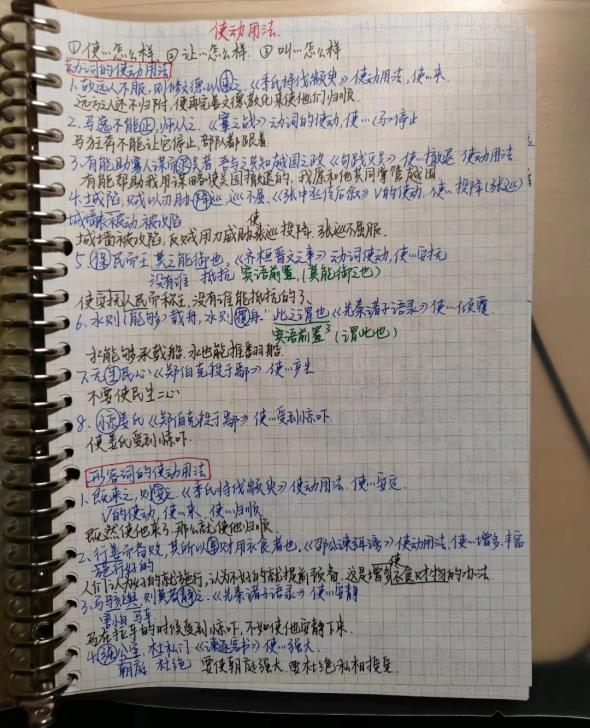 使动用法
①使…怎么样 ②让…怎么样 ③叫…怎么样
动词的使动用法
1.故远人不服,则修文德以来之.《季氏将伐颛臾》使动用法,使…来
远方人还不归附,便再完善文德教化来使他们归顺
2.马逸不能止,师从之.《鞌之战》动词的使动,使…(马)停止
马狂奔不能让它停止,部队都跟着
3.有能助寡人谋而退吴者,吾与之共知越国之政《勾践灭吴》使…撤退 使动用法
有能帮助我用谋略使吴国撤退的,我愿和他共同掌管越国
4.城陷,贼以刃胁降巡,巡不屈.《张中丞传后叙》V的使动.使…投降(张巡)
城墙表被动,被攻陷
使
城墙被攻陷,反贼用刀威胁张巡投降.张巡不屈服.
5.保民而王 莫之能御也.《齐桓晋文之事》动词使动,使…安抚
没有谁 抵抗 宾语前置,(莫能御之也)
使安抚人民而称王,没有谁能抵抗的了.
6.水则(能够)载舟,水则覆舟."此之谓也《先秦诸子语录》使…倾覆
宾语前置(谓此也)
水能够承载船.水也能推翻船.
7.无生民心《郑伯克段于鄢》使…产生
不要使民生二心
8.惊姜氏《郑伯克段于鄢》使…受到惊吓
使姜氏受到惊吓.
形容词的使动用法
1.既来之,则安之.《季氏将伐颛臾》使动用法.使…安定
V的使动,使…来、使…归顺
既然使他来了.那么就使他归顺
2.行善而备败,其所以阜财用衣食者也,《邵公谏厉王弭谤》使动用法.使…增多.丰富
施行好的
使
人们认为好的就施行,认为不好的就提前预备.这是增多衣食财物的办法
3.马骇舆则莫若静之.《先秦诸子语录》使…安静
害怕 马车
马在拉车的时候受到惊吓,不如使他安静下来.
4.强公室.杜私门《谏逐客书》使…强大
朝庭 杜绝 要使朝庭强大.要杜绝私相授受